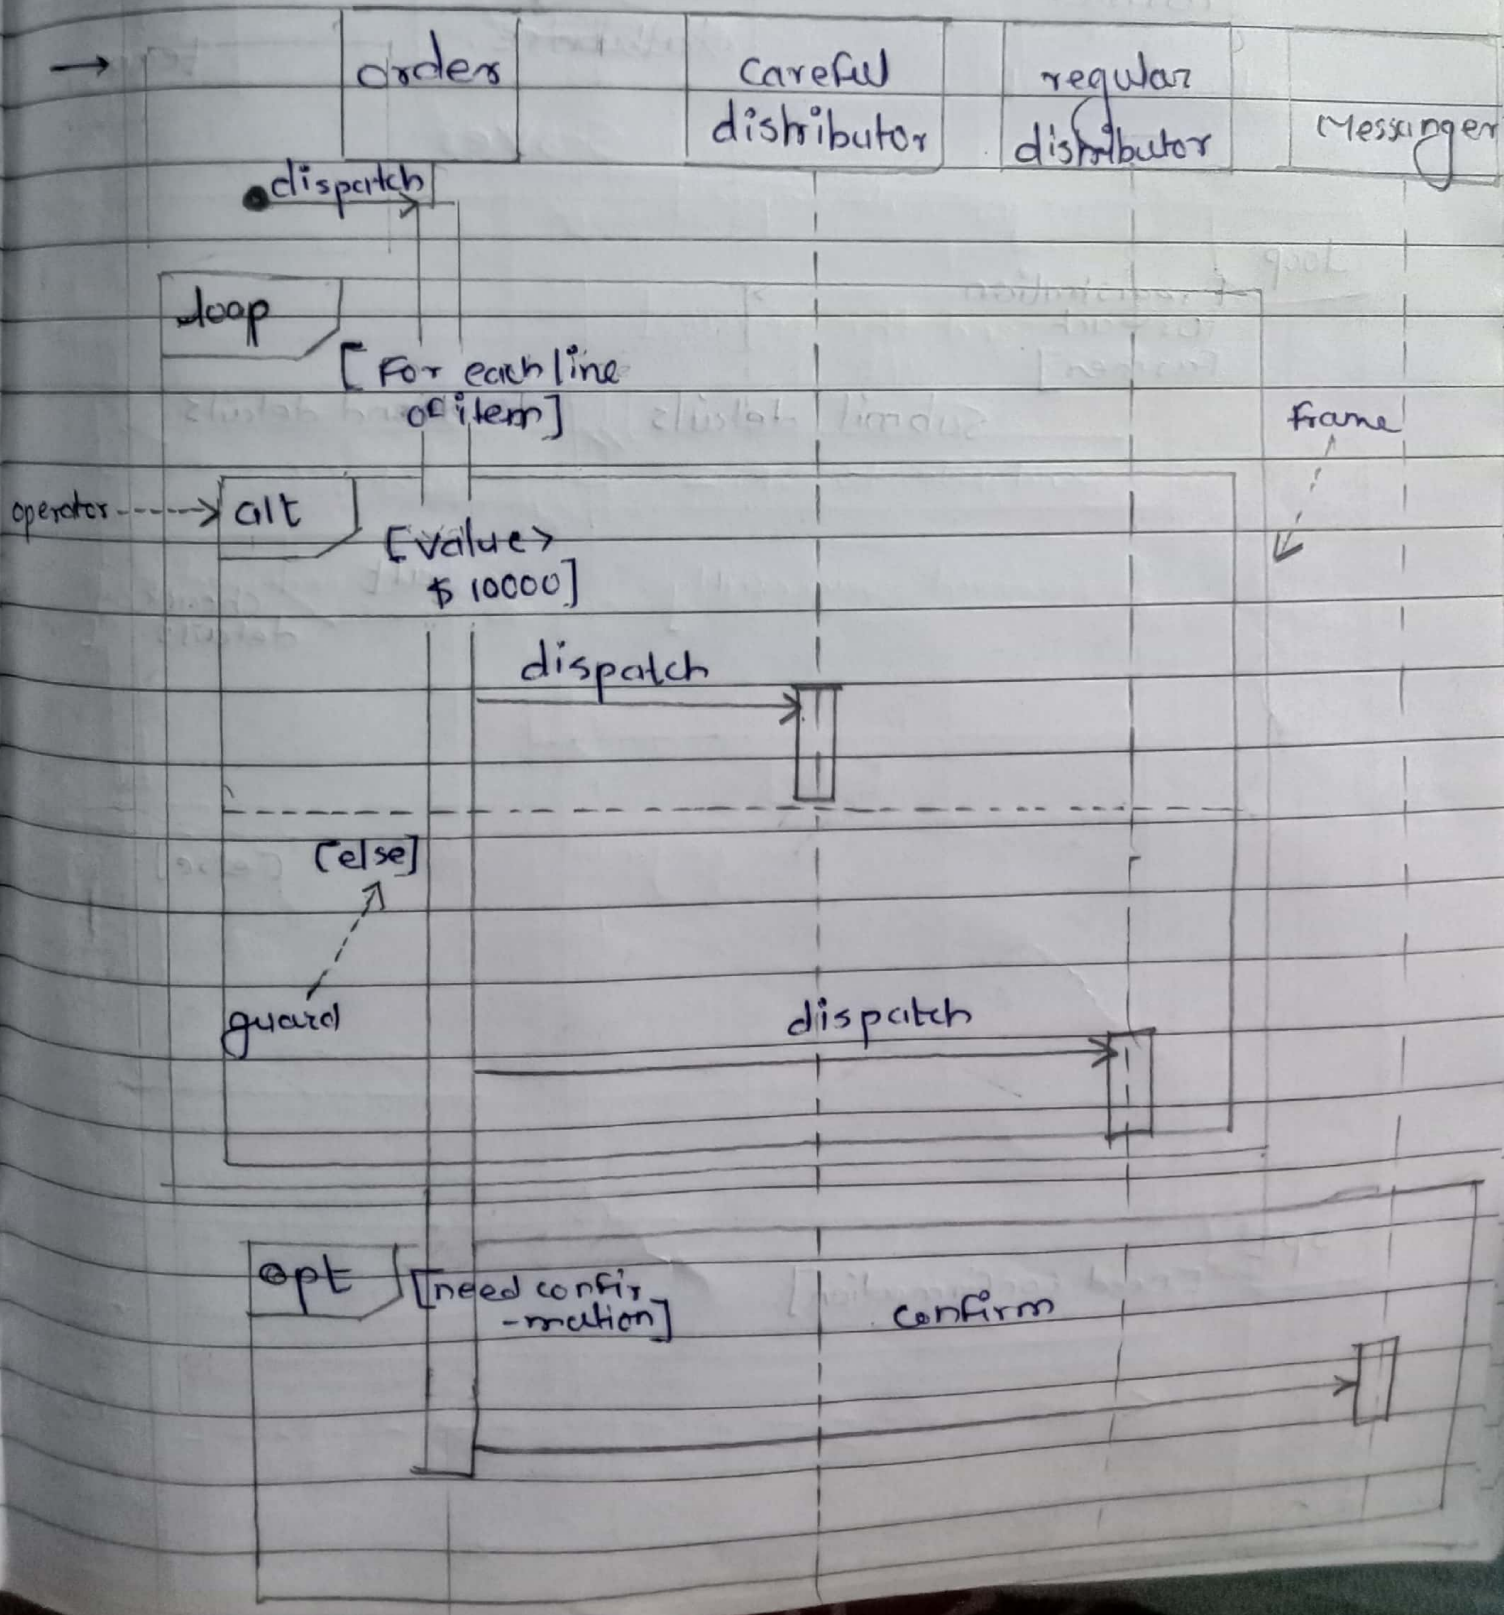 order
careful
distributor
regular
distributor
Messanger
dispatch
loop
[For each line
of item]
frame
operator
alt
[value>
$ 10000]
dispatch
[else]
guard
dispatch
opt
[need confir
-mation]
confirm